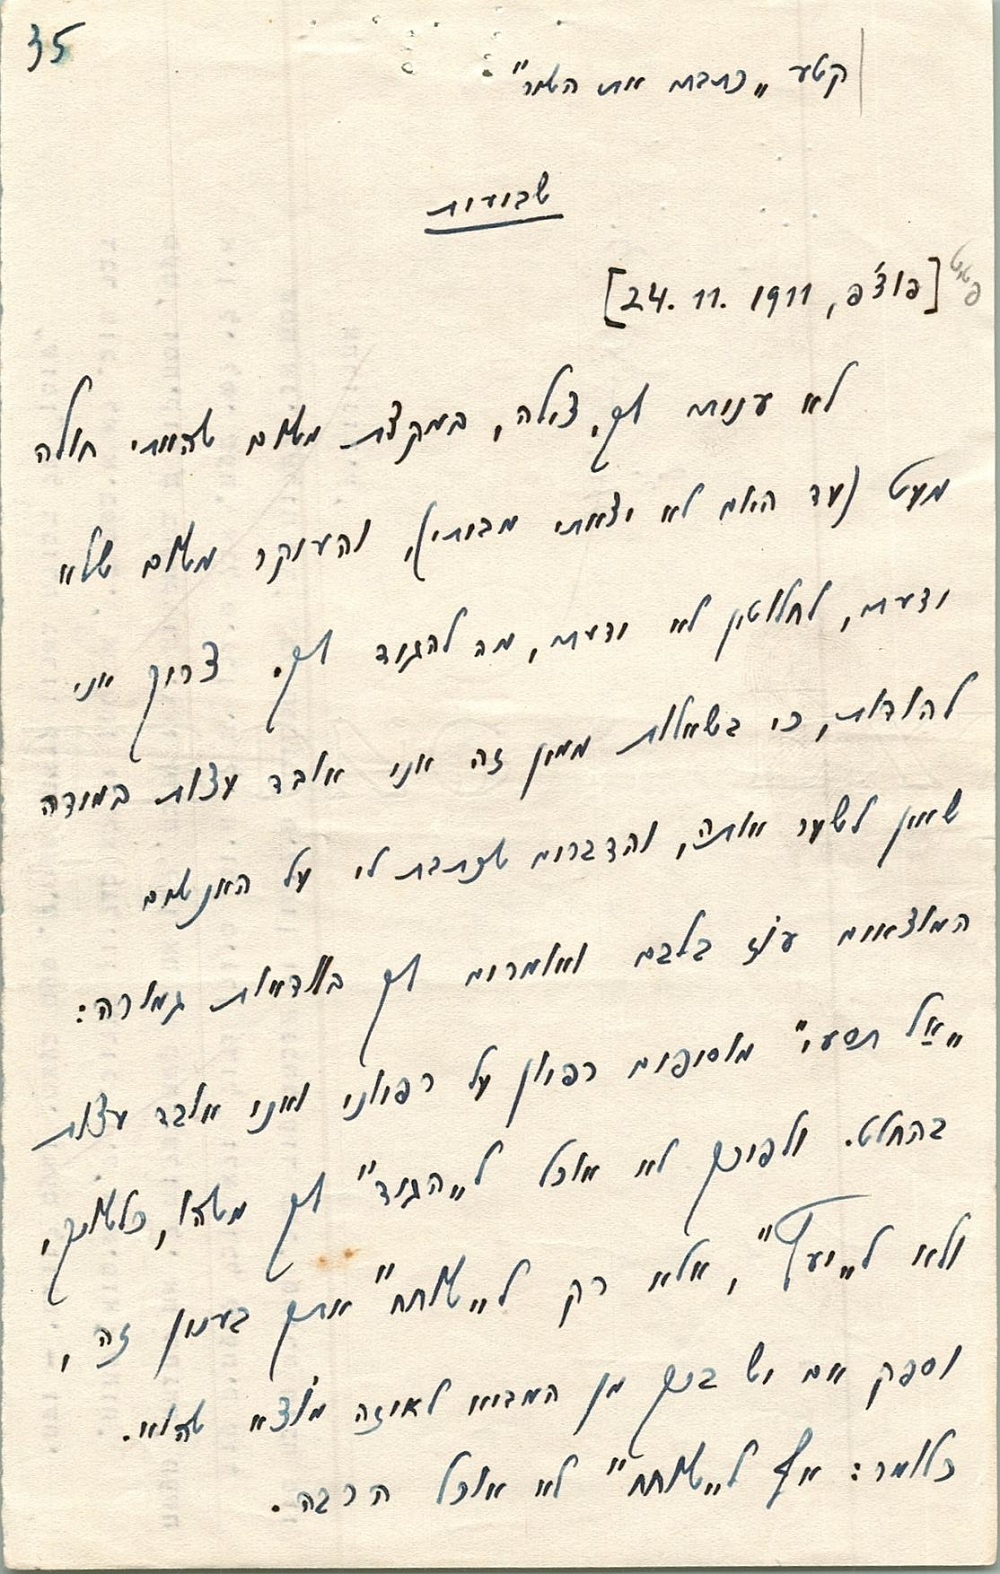 35
קטע „כתבת את השיר"
שבועות
[פוצ'פ, 24. 11. 1911]
לא עניתי לך, צילה, במקצת משום שהייתי חולה
מעט (עד היום לא יצאתי מביתי), והעיקר משום שלא
ידעתי, לחלוטין לא ידעתי, מה להגיד לך. צריך אני
להודות, כי בשאלות ממין זה אני אובד עצות במידה
שאין לשער אותה, והדברים שכתבת לי על האנשים
המוצאים עוֹז בלבם ואומרים לך בוודאות גמורה:
„אַל תסעי" מוסיפים רפיון על רפיוני ואני אובד עצות
בהחלט. ולפיכך לא אוכל ל„הגיד" לך משהו, כלשונך,
ולא ל„יעץ", אלא רק ל„שוחח" אתך בענין זה,
וספק אם יש בכך מן המביא לאיזה מוֹצא שהוא.
כלומר: אף ל„שוחח" לא אוכל הרבה.